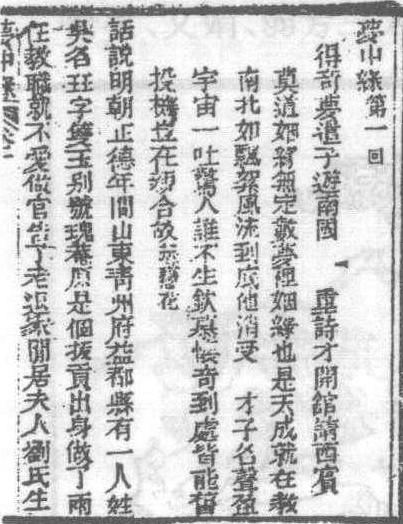 夢中緣第一回
得奇夢遣子遊南國 重詩才開館請西賓
莫道姻緣無定數夢裡姻緣也是天成就任教
南北如飄絮風流到底他消受 才子名聲盈
宇宙一吐驚人誰不生欽慕懷奇到處皆能售
投機豈在親合故 蝶戀花
話說明朝正德年間山東青州府益都縣有一人姓
吳名珏字雙玉別號瑰菴原是個拔貢出身做了兩
任教職就不愛做官告了老退家閒居夫人劉氏生
夢中緣